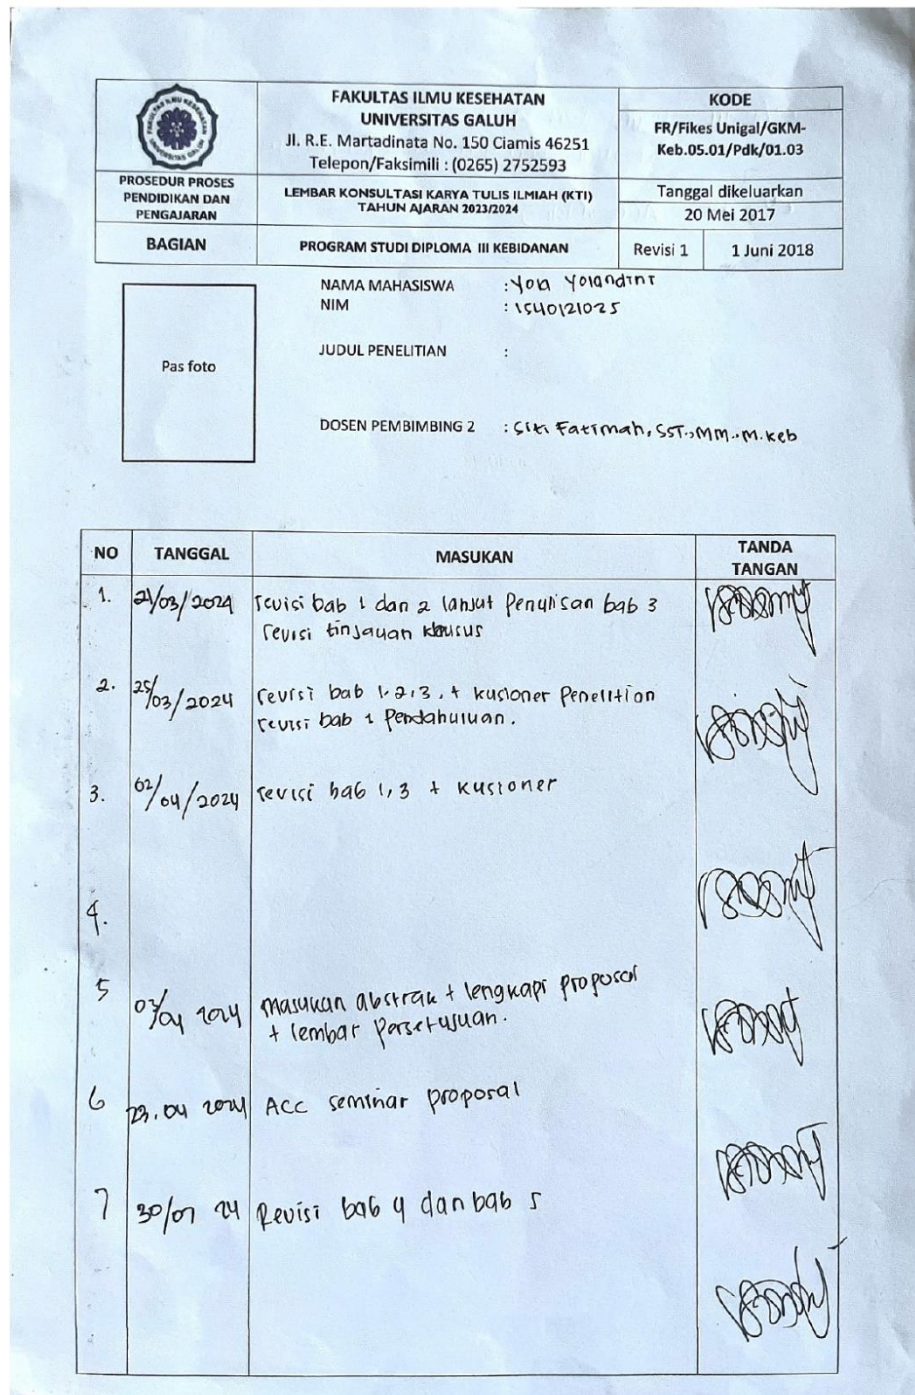 FAKULTAS ILMU KESEHATAN
UNIVERSITAS GALUH
FAKULTAS ILMU KESEHATAN
UNIVERSITAS GALUH
Jl. R.E. Martadinata No. 150 Ciamis 46251
Telepon/Faksimili : (0265) 2752593
KODE
FR/Fikes Unigal/GKM-
Keb.05.01/Pdk/01.03
PROSEDUR PROSES
PENDIDIKAN DAN
PENGAJARAN
LEMBAR KONSULTASI KARYA TULIS ILMIAH (KTI)
TAHUN AJARAN 2023/2024
Tanggal dikeluarkan
20 Mei 2017
BAGIAN
PROGRAM STUDI DIPLOMA III KEBIDANAN
Revisi 1
1 Juni 2018
Pas foto
NAMA MAHASISWA : Yola Yolandini
NIM : 1540121025
JUDUL PENELITIAN :
DOSEN PEMBIMBING 2 : Siti Fatimah, SST., MM., M.Keb
NO TANGGAL MASUKAN TANDA TANGAN
1. 21/03/2024 revisi bab 1 dan 2 lanjut Penulisan bab 3
revisi tinjauan khusus
2. 25/03/2024 revisi bab 1,2,3, + kusioner Penelitian
revisi bab 1 Pendahuluan.
3. 02/04/2024 revisi bab 1,3 + kusioner
4.
5 03/04 2024 masukan abstrak + lengkapi proposal
+ lembar persetujuan.
6 23.04 2024 ACC seminar proposal
7 30/07 24 Revisi bab 4 dan bab 5